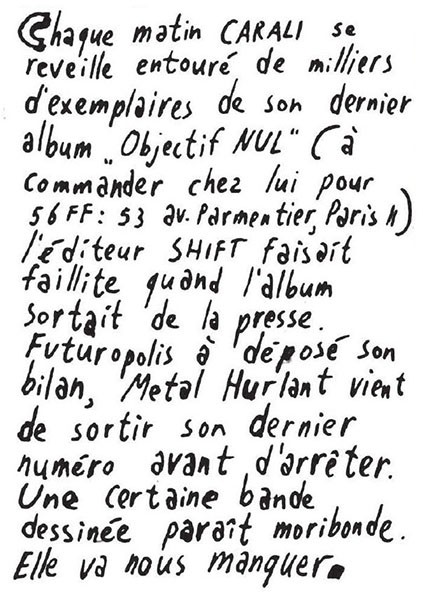 Chaque matin CARALI se
reveille entouré de milliers
d'exemplaires de son dernier
album „Objectif NUL" (à
commander chez lui pour
56 FF: 53 av. Parmentier, Paris 11)
l'éditeur SHIFT faisait
faillite quand l'album
sortait de la presse.
Futuropolis à déposé son
bilan, Metal Hurlant vient
de sortir son dernier
numéro avant d'arrêter.
Une certaine bande
dessinée paraît moribonde.
Elle va nous manquer.